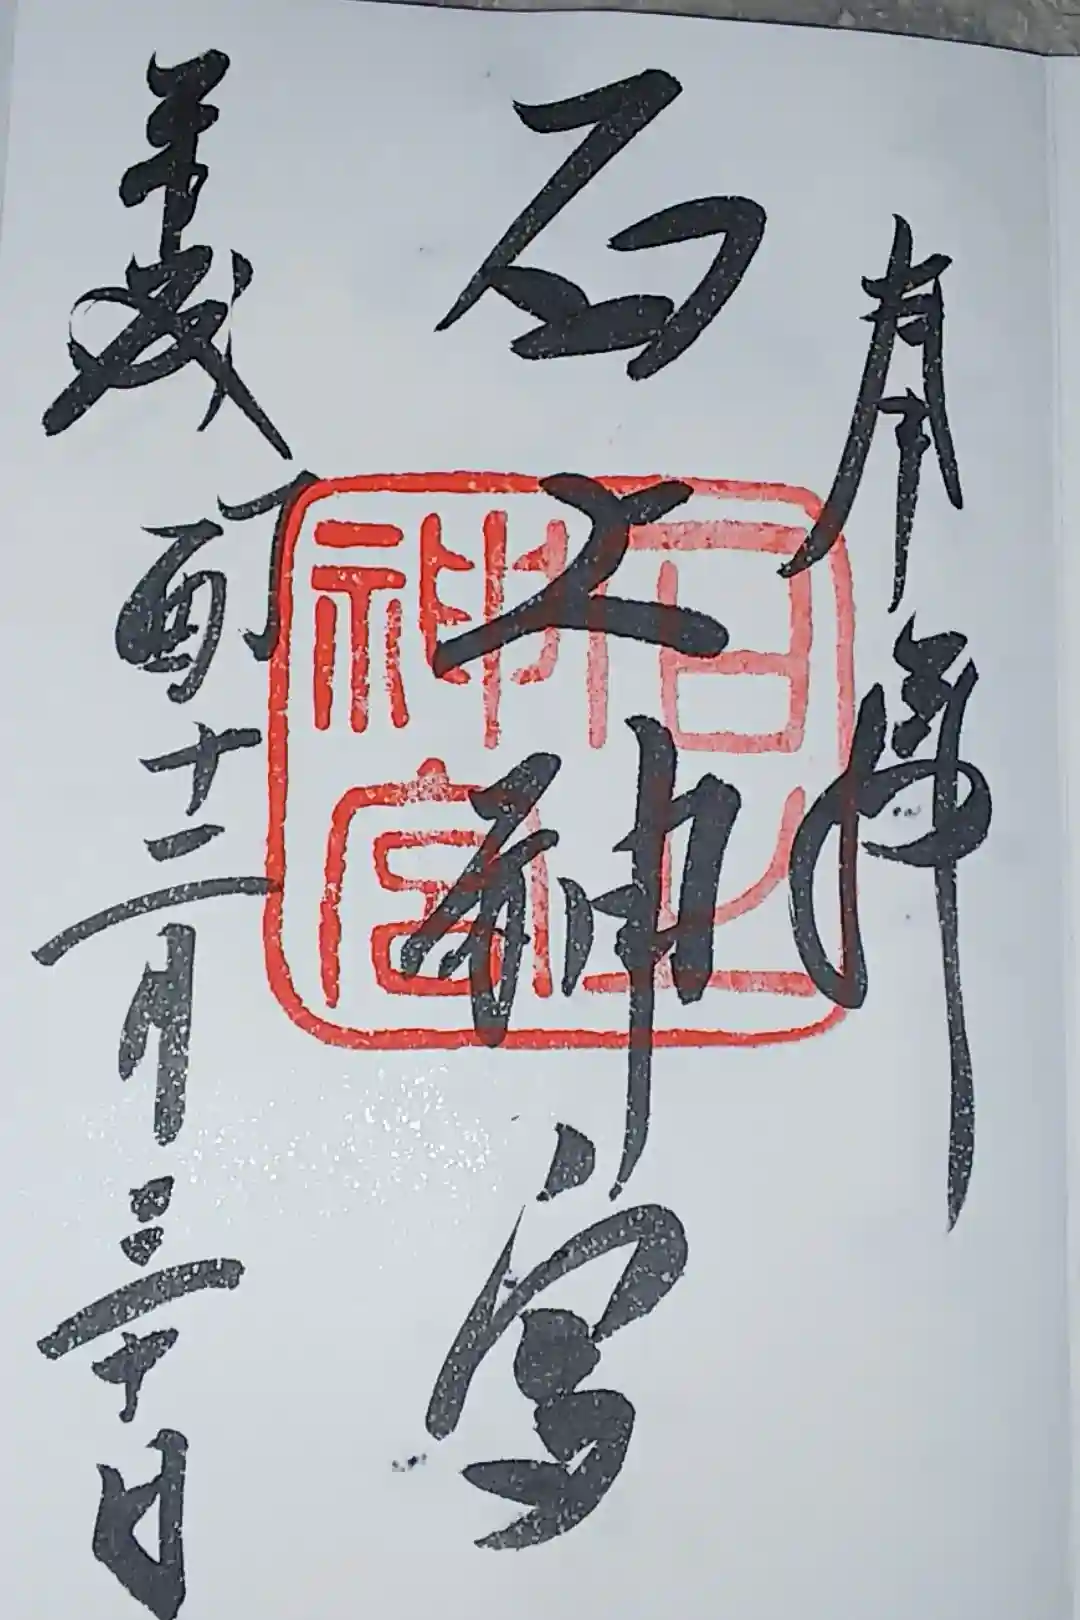 奉拝
石上神宮
平成丁酉十二月三十日
石上神宮